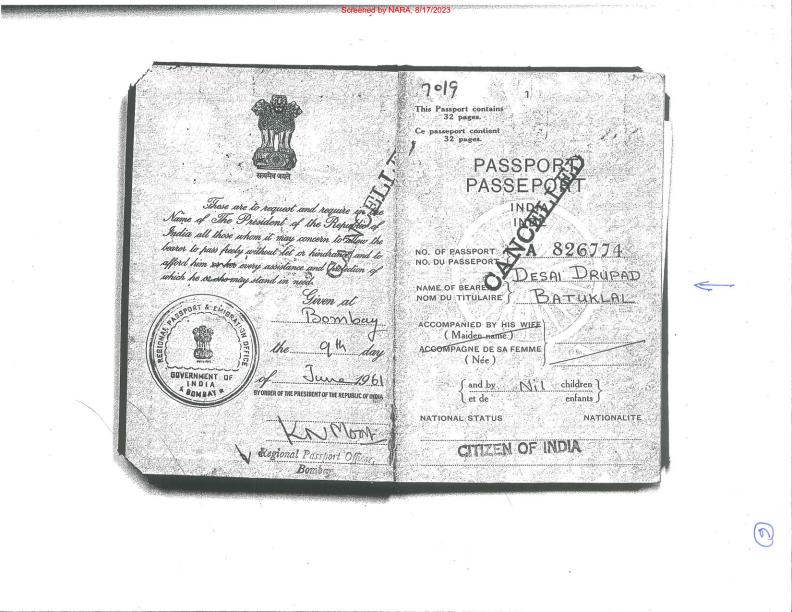 Screened by NARA, 8/17/2023
सत्यमेव जयते
These are to request and require in the
Name of The President of the Republic of
India all those whom it may concern to allow the
bearer to pass freely without let or hindrance and to
afford him or her every assistance and protection of
which he or she may stand in need.
CANCELLED
Given at
Bombay
the 9th day
of June 1961
BY ORDER OF THE PRESIDENT OF THE REPUBLIC OF INDIA
REGIONAL PASSPORT & EMIGRATION OFFICE
GOVERNMENT OF
INDIA
BOMBAY
KN
Regional Passport Officer,
Bombay
7019
1
This Passport contains
32 pages.
Ce passeport contient
32 pages.
PASSPORT
PASSEPORT
CANCELLED
NO. OF PASSPORT A 826774
NO. DU PASSEPORT
NAME OF BEARER DESAI DRUPAD
NOM DU TITULAIRE BATUKLAL
ACCOMPANIED BY HIS WIFE
( Maiden name )
ACCOMPAGNE DE SA FEMME
( Née )
and by Nil children
et de enfants
NATIONAL STATUS NATIONALITE
CITIZEN OF INDIA
9